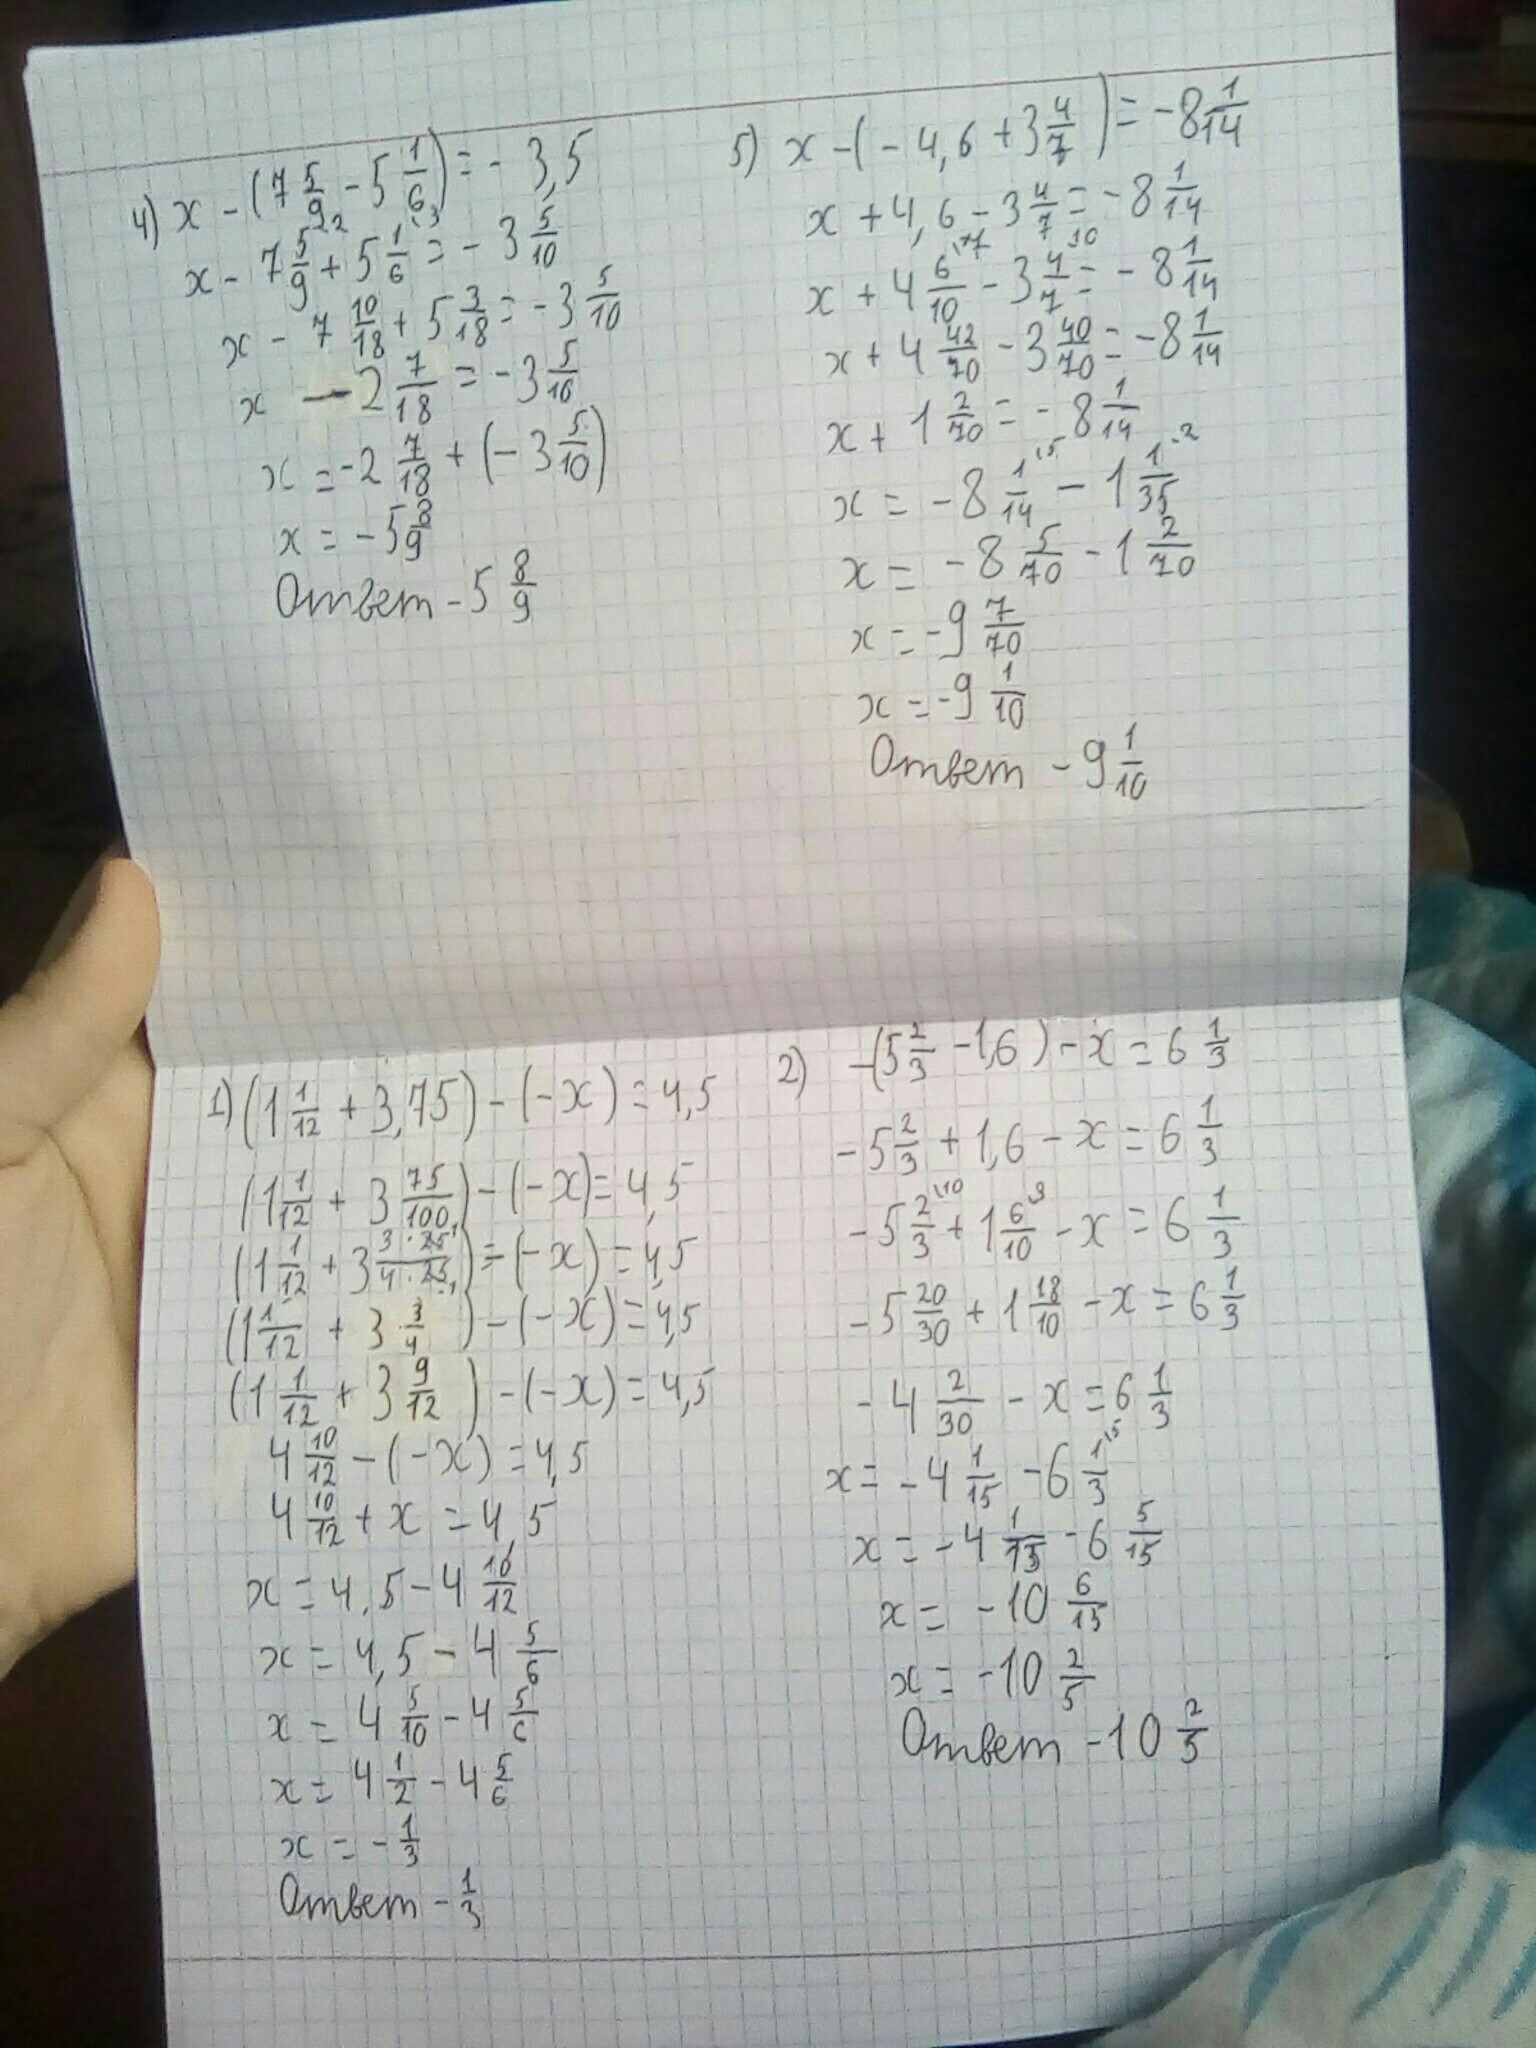 4) x - (7 5/9 - 5 1/6) = - 3,5
x - 7 5/9 \2 + 5 1/6 \3 = - 3 5/10
x - 7 10/18 + 5 3/18 = - 3 5/10
x - 2 7/18 = - 3 5/10
x = - 2 7/18 + (- 3 5/10)
x = - 5 8/9
Ответ - 5 8/9
5) x - (- 4,6 + 3 4/7) = - 8 1/14
x + 4,6 - 3 4/7 = - 8 1/14
x + 4 6/10 \7 - 3 4/7 \10 = - 8 1/14
x + 4 42/70 - 3 40/70 = - 8 1/14
x + 1 2/70 = - 8 1/14
x = - 8 1/14 \5 - 1 1/35 \2
x = - 8 5/70 - 1 2/70
x = - 9 7/70
x = - 9 1/10
Ответ - 9 1/10
1) (1 1/12 + 3,75) - (-x) = 4,5
(1 1/12 + 3 75/100) - (-x) = 4,5
(1 1/12 + 3 3·25/4·25) - (-x) = 4,5
(1 1/12 + 3 3/4) - (-x) = 4,5
(1 1/12 + 3 9/12) - (-x) = 4,5
4 10/12 - (-x) = 4,5
4 10/12 + x = 4,5
x = 4,5 - 4 10/12
x = 4,5 - 4 5/6
x = 4 5/10 - 4 5/6
x = 4 1/2 - 4 5/6
x = - 1/3
Ответ - 1/3
2) -(5 2/3 - 1,6) - x = 6 1/3
- 5 2/3 + 1,6 - x = 6 1/3
- 5 2/3 \10 + 1 6/10 \3 - x = 6 1/3
- 5 20/30 + 1 18/10 - x = 6 1/3
- 4 2/30 - x = 6 1/3
x = - 4 1/15 - 6 1/3 \5
x = - 4 1/15 - 6 5/15
x = - 10 6/15
x = - 10 2/5
Ответ - 10 2/5